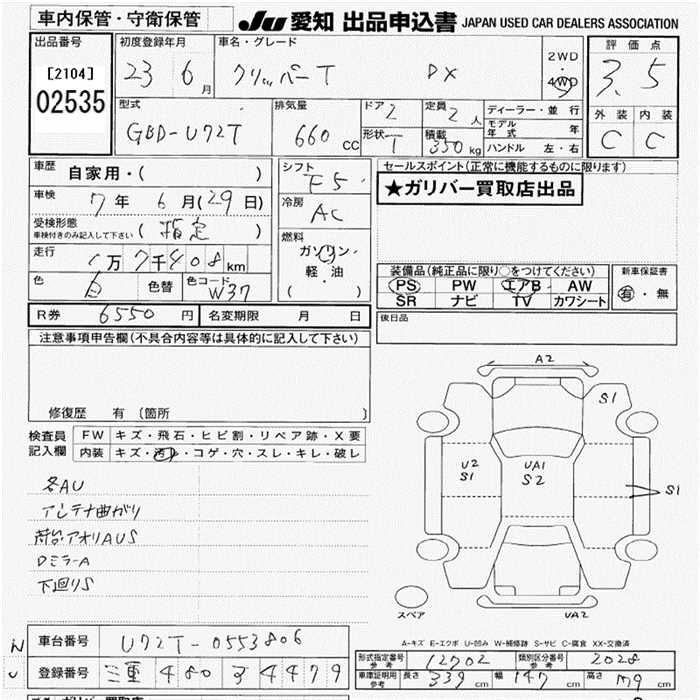 車内保管・守衛保管 JU 愛知 出品申込書 JAPAN USED CAR DEALERS ASSOCIATION
出品番号 [2104] 02535
初度登録年月 23 6月
車名・グレード クリッパーT DX
2WD・4WD
評価点 3.5
外装 C 内装 C
型式 GBD-U72T
排気量 660cc
ドア 2 形状 T
定員 2人 積載 350kg
ディーラー・並行
モデル年式 年
ハンドル 左・右
車歴 自家用・( )
車検 7年 6月(29日)
受検形態 車検付きのみ記入して下さい (指定)
走行 1万7千408km
色 白 色替 色コード W37
シフト F5
冷房 AC
燃料 ガソリン・軽・油 ( )
セールスポイント(正常に機能するものに限ります)
★ガリバー買取店出品
装備品(純正品に限り○をつけてください)
PS PW エアB AW
SR ナビ TV カワシート
新車保証書 有・無
R券 6550円 名変期限 月 日
後日品
注意事項申告欄(不具合内容等は具体的に記入して下さい)
修復歴 有 (箇所 )
検査員記入欄
FW キズ・飛石・ヒビ割・リペア跡・X要
内装 キズ・汚レ・コゲ・穴・スレ・キレ・破レ
各AU
アンテナ曲がり
荷台アオリAUS
DミラーA
下回りS
A2
S1
U2 S1
UA1 S2
S1
UA2
スペア
A-キズ E-エクボ U-凹み W-補修跡 S-サビ C-腐食 XX-交換済
車台番号 U72T-0553806
登録番号 三重 480 す 4479
型式指定番号 参考 12702 類別区分番号 参考 2028
車庫証明用 参考 長さ 339cm 幅 147cm 高さ 179cm